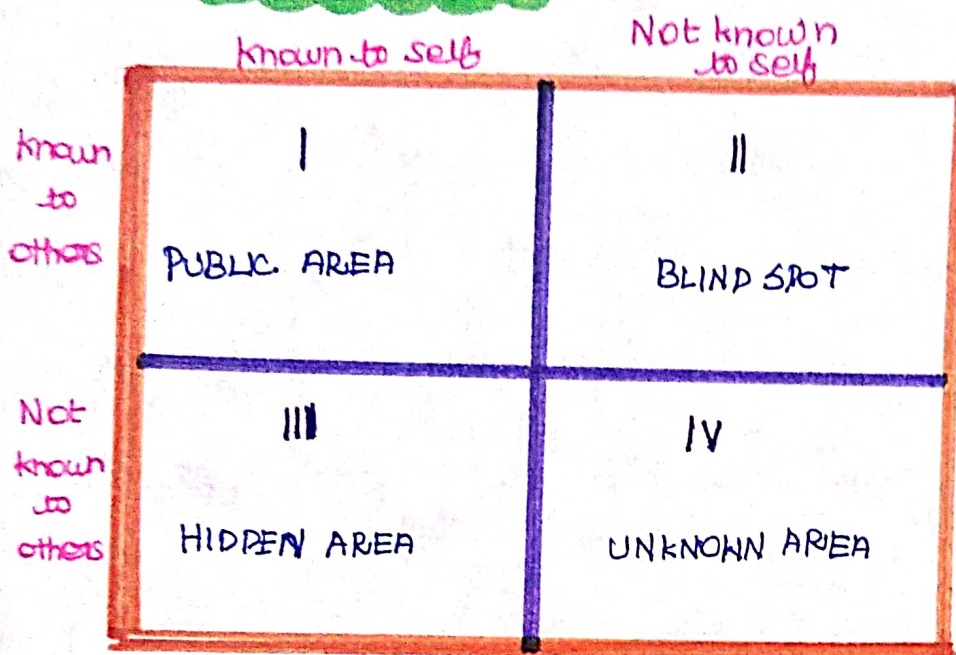 known to self
Not known
to self
known
to
others
I
II
PUBLIC AREA
BLIND SPOT
Not
known
to
others
III
IV
HIDDEN AREA
UNKNOWN AREA